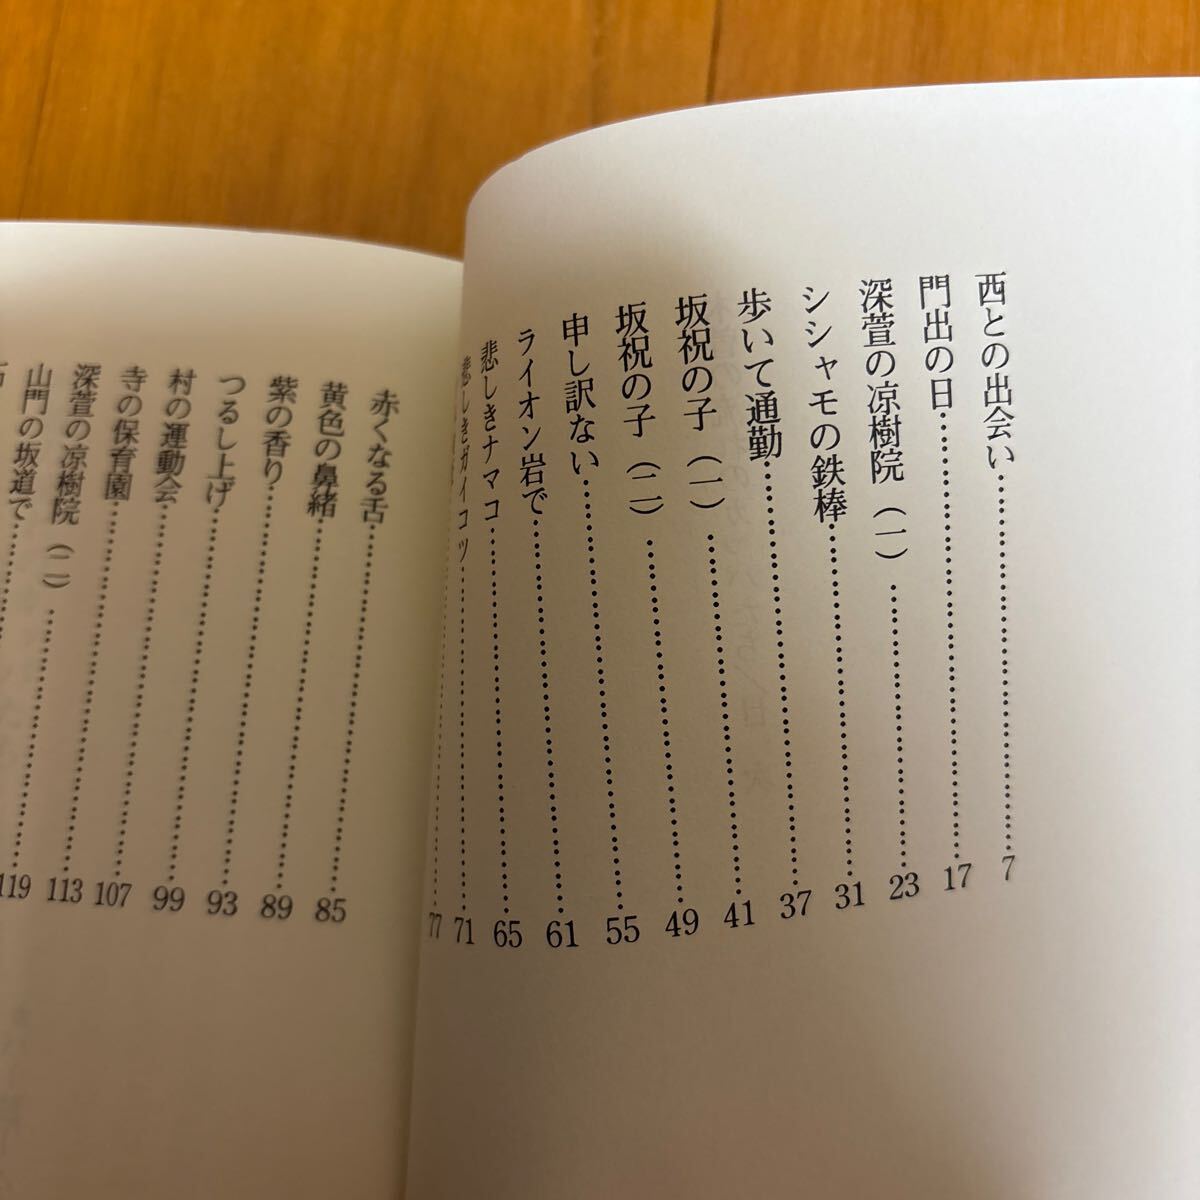 西との出会い……7
門出の日……17
深萱の凉樹院（一）……23
シシャモの鉄棒……31
歩いて通勤……37
坂祝の子（一）……41
坂祝の子（二）……49
申し訳ない……55
ライオン岩で……61
悲しきナマコ……65
悲しきガイコツ……71
77
赤くなる舌……85
黄色の鼻緒……89
紫の香り……93
つるし上げ……99
村の運動会……107
寺の保育園……113
深萱の凉樹院（二）……119
山門の坂道で